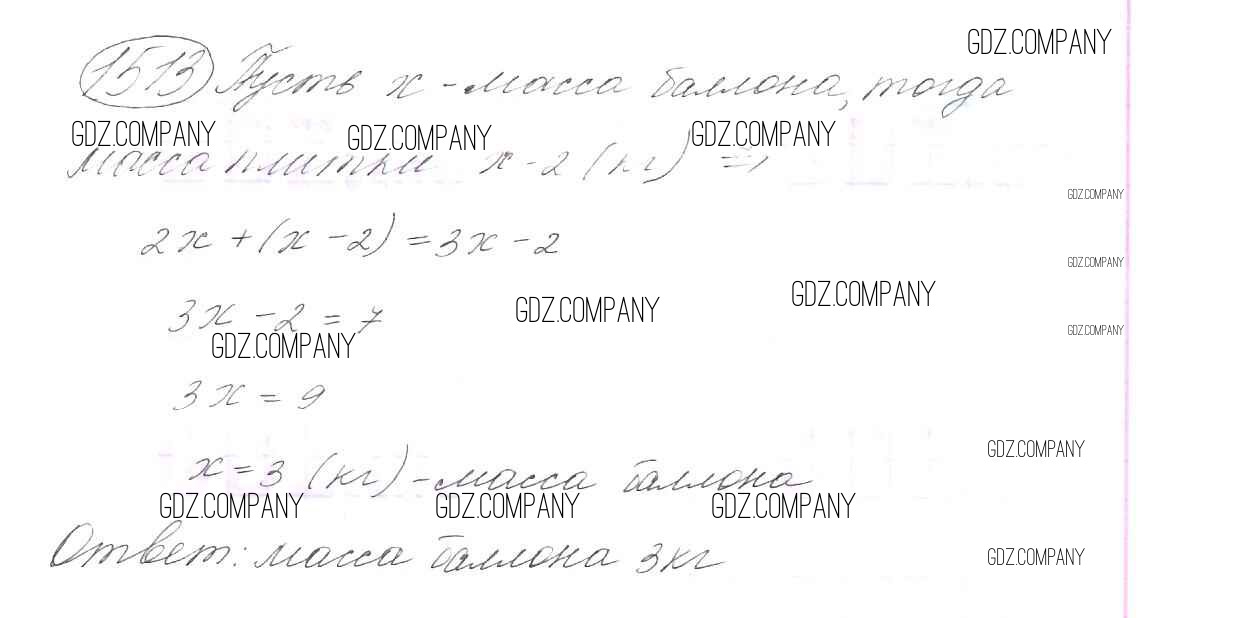 GDZ.COMPANY
1513 Пусть x - масса баллона, тогда
GDZ.COMPANY GDZ.COMPANY GDZ.COMPANY
масса плитки x - 2 (кг) =>
GDZ.COMPANY
2x + (x - 2) = 3x - 2
GDZ.COMPANY
GDZ.COMPANY GDZ.COMPANY
3x - 2 = 7
GDZ.COMPANY
GDZ.COMPANY
3x = 9
GDZ.COMPANY
x = 3 (кг) - масса баллона
GDZ.COMPANY GDZ.COMPANY GDZ.COMPANY
Ответ: масса баллона 3кг
GDZ.COMPANY